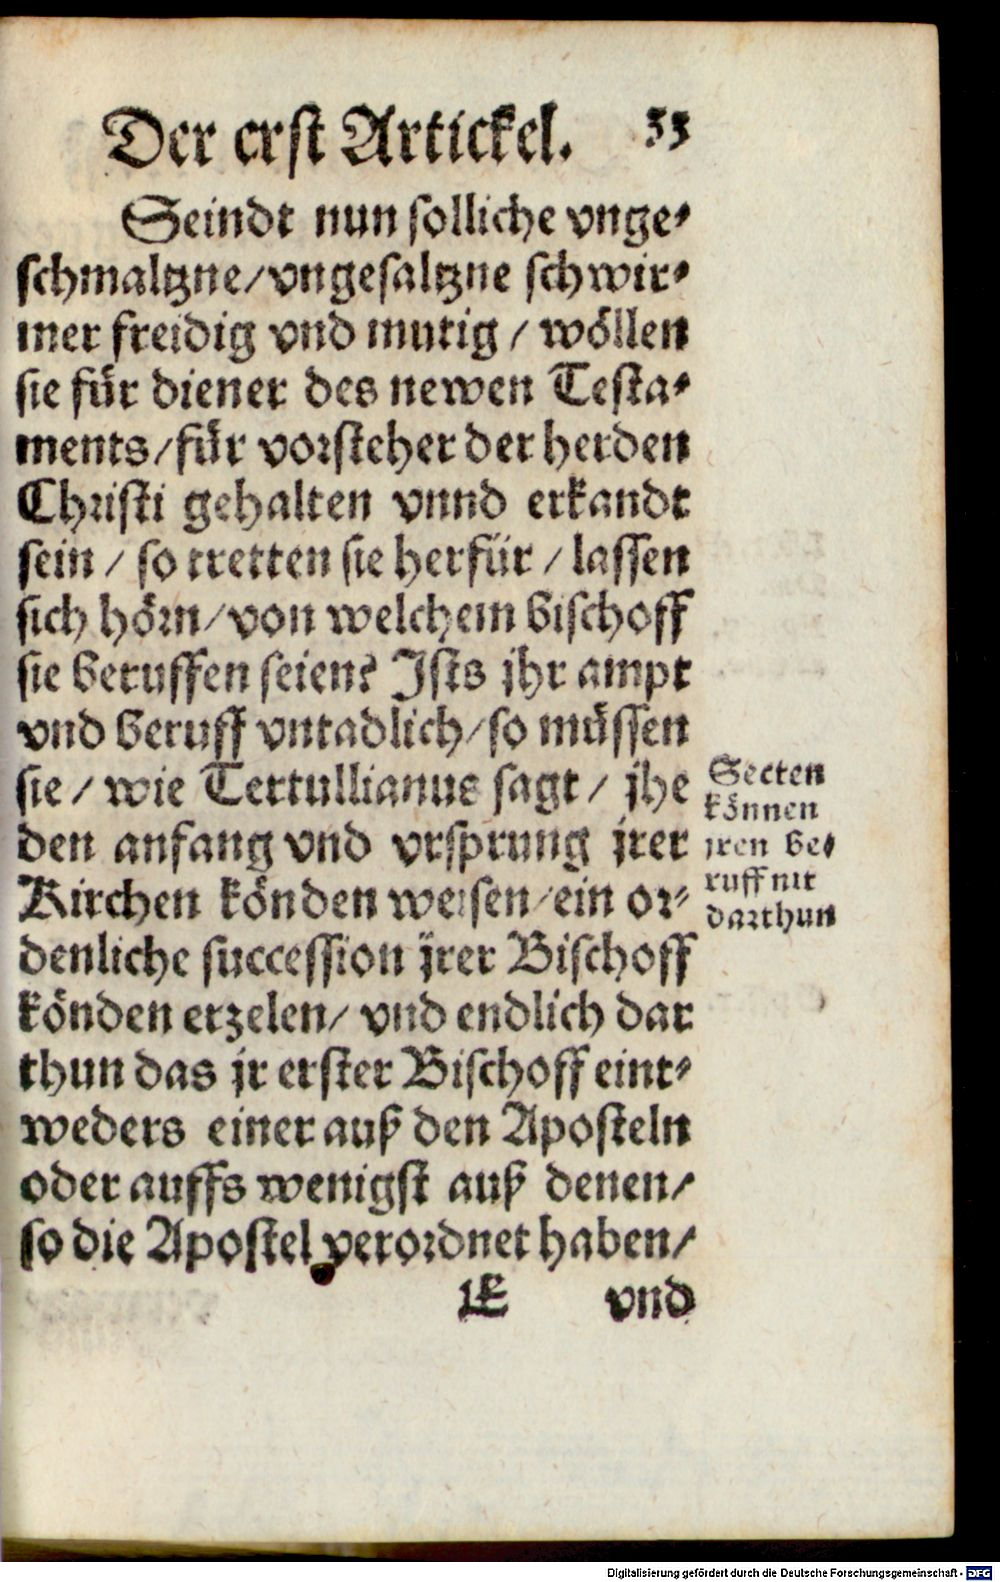 Der erst Artickel. 33
Seindt nun solliche vnge-
schmaltzne/vngesaltzne schwir-
mer freidig vnd mutig / wöllen
sie für diener des newen Testa-
ments/für vorsteher der herden
Christi gehalten vnnd erkandt
sein / so tretten sie herfür / lassen
sich hörn/von welchem bischoff
sie beruffen seien? Ists jhr ampt
vnd beruff vntadlich/so müssen
sie / wie Tertullianus sagt / jhe
den anfang vnd vrsprung jrer
Kirchen könden weisen/ein or-
denliche succession jrer Bischoff
könden erzelen/ vnd endlich dar
thun das jr erster Bischoff eint-
weders einer auß den Aposteln
oder auffs wenigst auß denen/
so die Apostel verordnet haben/
E vnd
Secten
können
jren be-
ruff nit
darthun
Digitalisierung gefördert durch die Deutsche Forschungsgemeinschaft - DFG